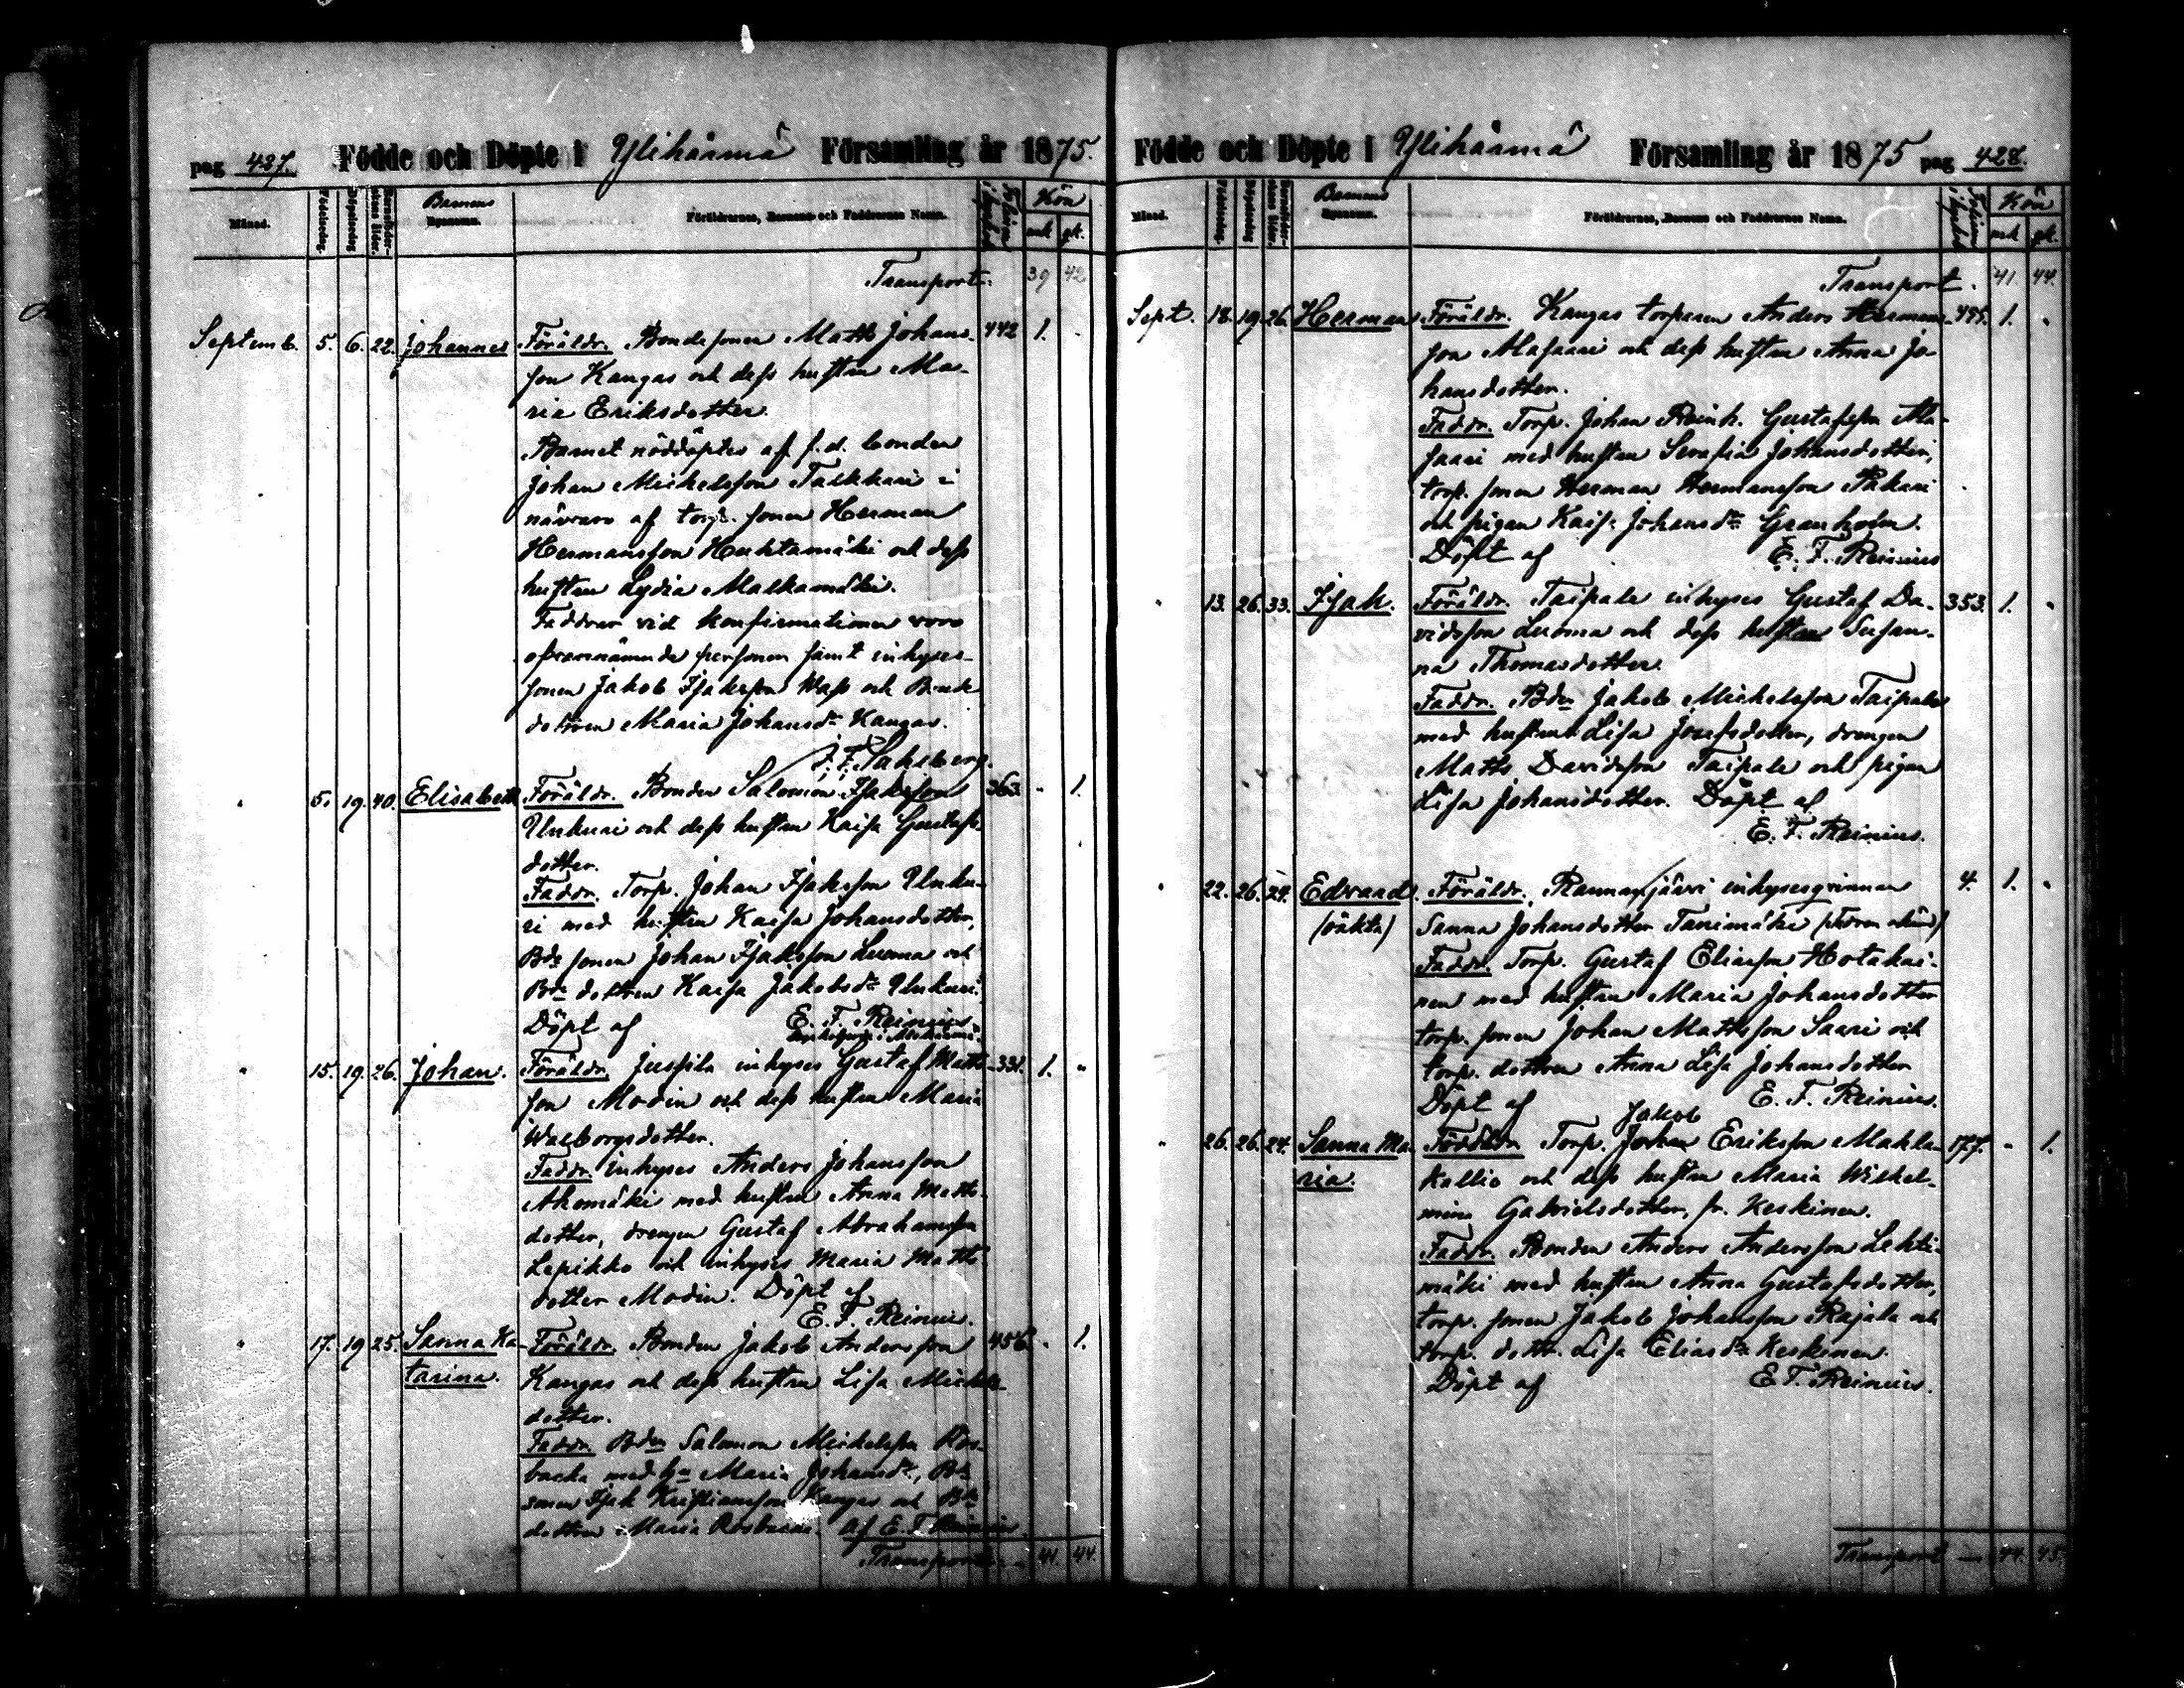 pag 427. Födde och Döpte i Ylihärmä Församling år 1875.
Månad. Födelsedag. Döpelsedag Barnaföderskans ålder. Barnens Föräldrarnes, och Faddrarnes Namn. Kön
mk qk.
Transport. 39 42
Septemb. 5. 6. 22. Johannes Föräldr. Bondesonen Matts Johans- 442 1.
son Kangas och dess hustru Ma-
ria Eriksdotter.
Barnet nöddöptes af f.d. bonden
Johan Michelsson Talkkari i
närvaro af torp. sonen Herman
Hermansson Huhtamäki och dess
hustru Lydia Malkamäki.
Faddrar vid konfirmationen voro
ofvannämnde personer samt inhyses-
sonen Jakob Isaksson Wass och Bonde
dottren Maria Johansdr Kangas.
5. 19. 40. Elisabeth Föräldr. Bonden Salomon Isaksson 363. " 1.
Unkuri och dess hustru Kaisa Gustafs-
dotter.
Faddr. Torp. Johan Isaksson Unku-
ri med hustru Kaisa Johansdotter,
Bde sonen Johan Isaksson Luoma och
Bde dottren Kaisa Jakobsdr Unkuri.
Döpt af E. F. Reinius.
" 15. 19. 26. Johan. Föräldr. Jussila inhyses Gustaf Matts- 331. 1. "
son Modin och dess hustru Maria
Walborgsdotter.
Faddr. inhyses Anders Johansson
Ahomäki med hustru Anna Matts-
dotter, drengen Gustaf Abrahamsson
Lepikko och inhyses Maria Matts
dotter Modin. Döpt af
E. F. Reinius.
" 17. 19 25. Sanna Ka- Föräldr. Bonden Jakob Andersson 456. " 1.
tarina. Kangas och dess hustru Lisa Michels-
dotter.
Faddr. Bden Salomon Michelsson Ros-
backa med hu Maria Johansdr, Bde
sonen Isak Kristiansson Kangas och Bde
dottren Maria Rosbacka. af E. F. Reinius.
Transport 41. 44.
Födde och Döpte i Ylihärmä Församling år 1875 pag 428.
Månad. Födelsedag. Döpelsedag Barnaföderskans ålder. Barnens Föräldrarnes, och Faddrarnes Namn. Kön
mk qk.
Transport. 41. 44.
Sept. 18. 19. 26. Herman Föräldr. Kangas torparen Anders Herman- 1. "
son Masaari och dess hustru Anna Jo-
hansdotter.
Faddr. Torp. Johan Reinh. Gustafsson Ma-
saari med hustru Serafia Johansdotter,
torp. sonen Herman Hermansson Pakari
och pigan Kaisa Johansdr Granholm.
Döpt af E. F. Reinius
" 13. 26. 33. Isak. Föräldr. Taipale inhyses Gustaf Da- 353. 1. "
vidsson Luoma och dess hustru Susan-
na Thomasdotter.
Faddr. Bden Jakob Michelsson Taipale
med hustru Lisa Josefsdotter, drengen
Matts Davidsson Taipale och pigan
Lisa Johansdotter. Döpt af
E. F. Reinius.
" 22. 26. 24. Edvard. Föräldr. Rannanjärvi inhysesqvinnan 4. 1. "
(oäkta) Sanna Johansdotter Tanimäki
Faddr. Torp. Gustaf Eliasson Hotakai-
nen med hustru Maria Johansdotter
torp. sonen Johan Mattsson Saari och
torp. dottren Anna Lisa Johansdotter
Döpt af E. F. Reinius.
Jakob
" 26. 26. 24. Sanna Ma- Föräldr. Torp. Johan Eriksson Makla- 177. " 1.
ria. kallio och dess hustru Maria Wilhel-
mina Gabrielsdotter, fr. Keskinen.
Faddr. Bonden Anders Andersson Lehti-
mäki med hustru Anna Gustafsdotter,
torp. sonen Jakob Johansson Rajala och
torp. dottr. Lisa Eliasdr Keskinen.
Döpt af E F. Reinius.
Transport 44. 45.